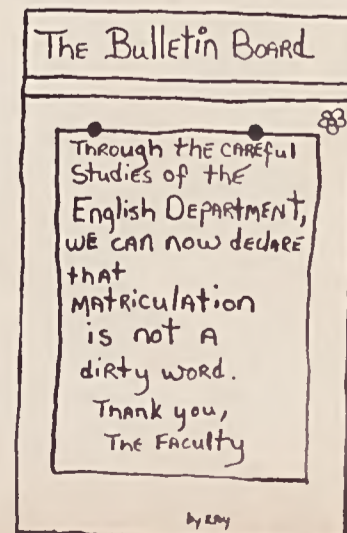 The Bulletin Board
Through the careful
Studies of the
English Department,
we can now declare
that
matriculation
is not a
dirty word.
Thank you,
The Faculty
by Ray